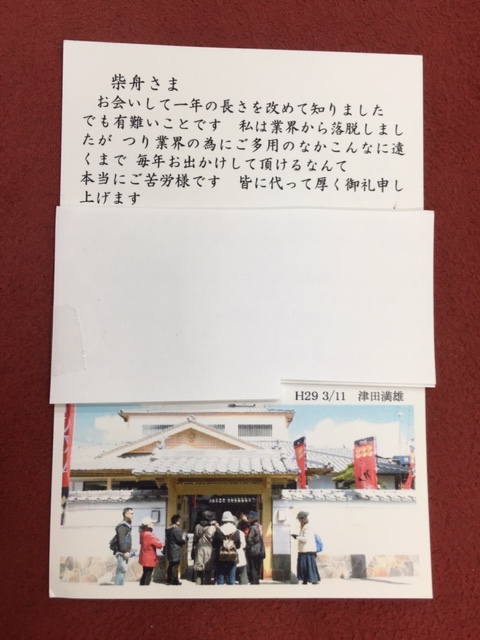 柴舟さま
お会いして一年の長さを改めて知りました
でも有難いことです　私は業界から落脱しまし
たが つり業界の為にご多用のなかこんなに遠
くまで 毎年お出かけして頂けるなんて
本当にご苦労様です　皆に代って厚く御礼申し
上げます
H29 3/11　津田満雄